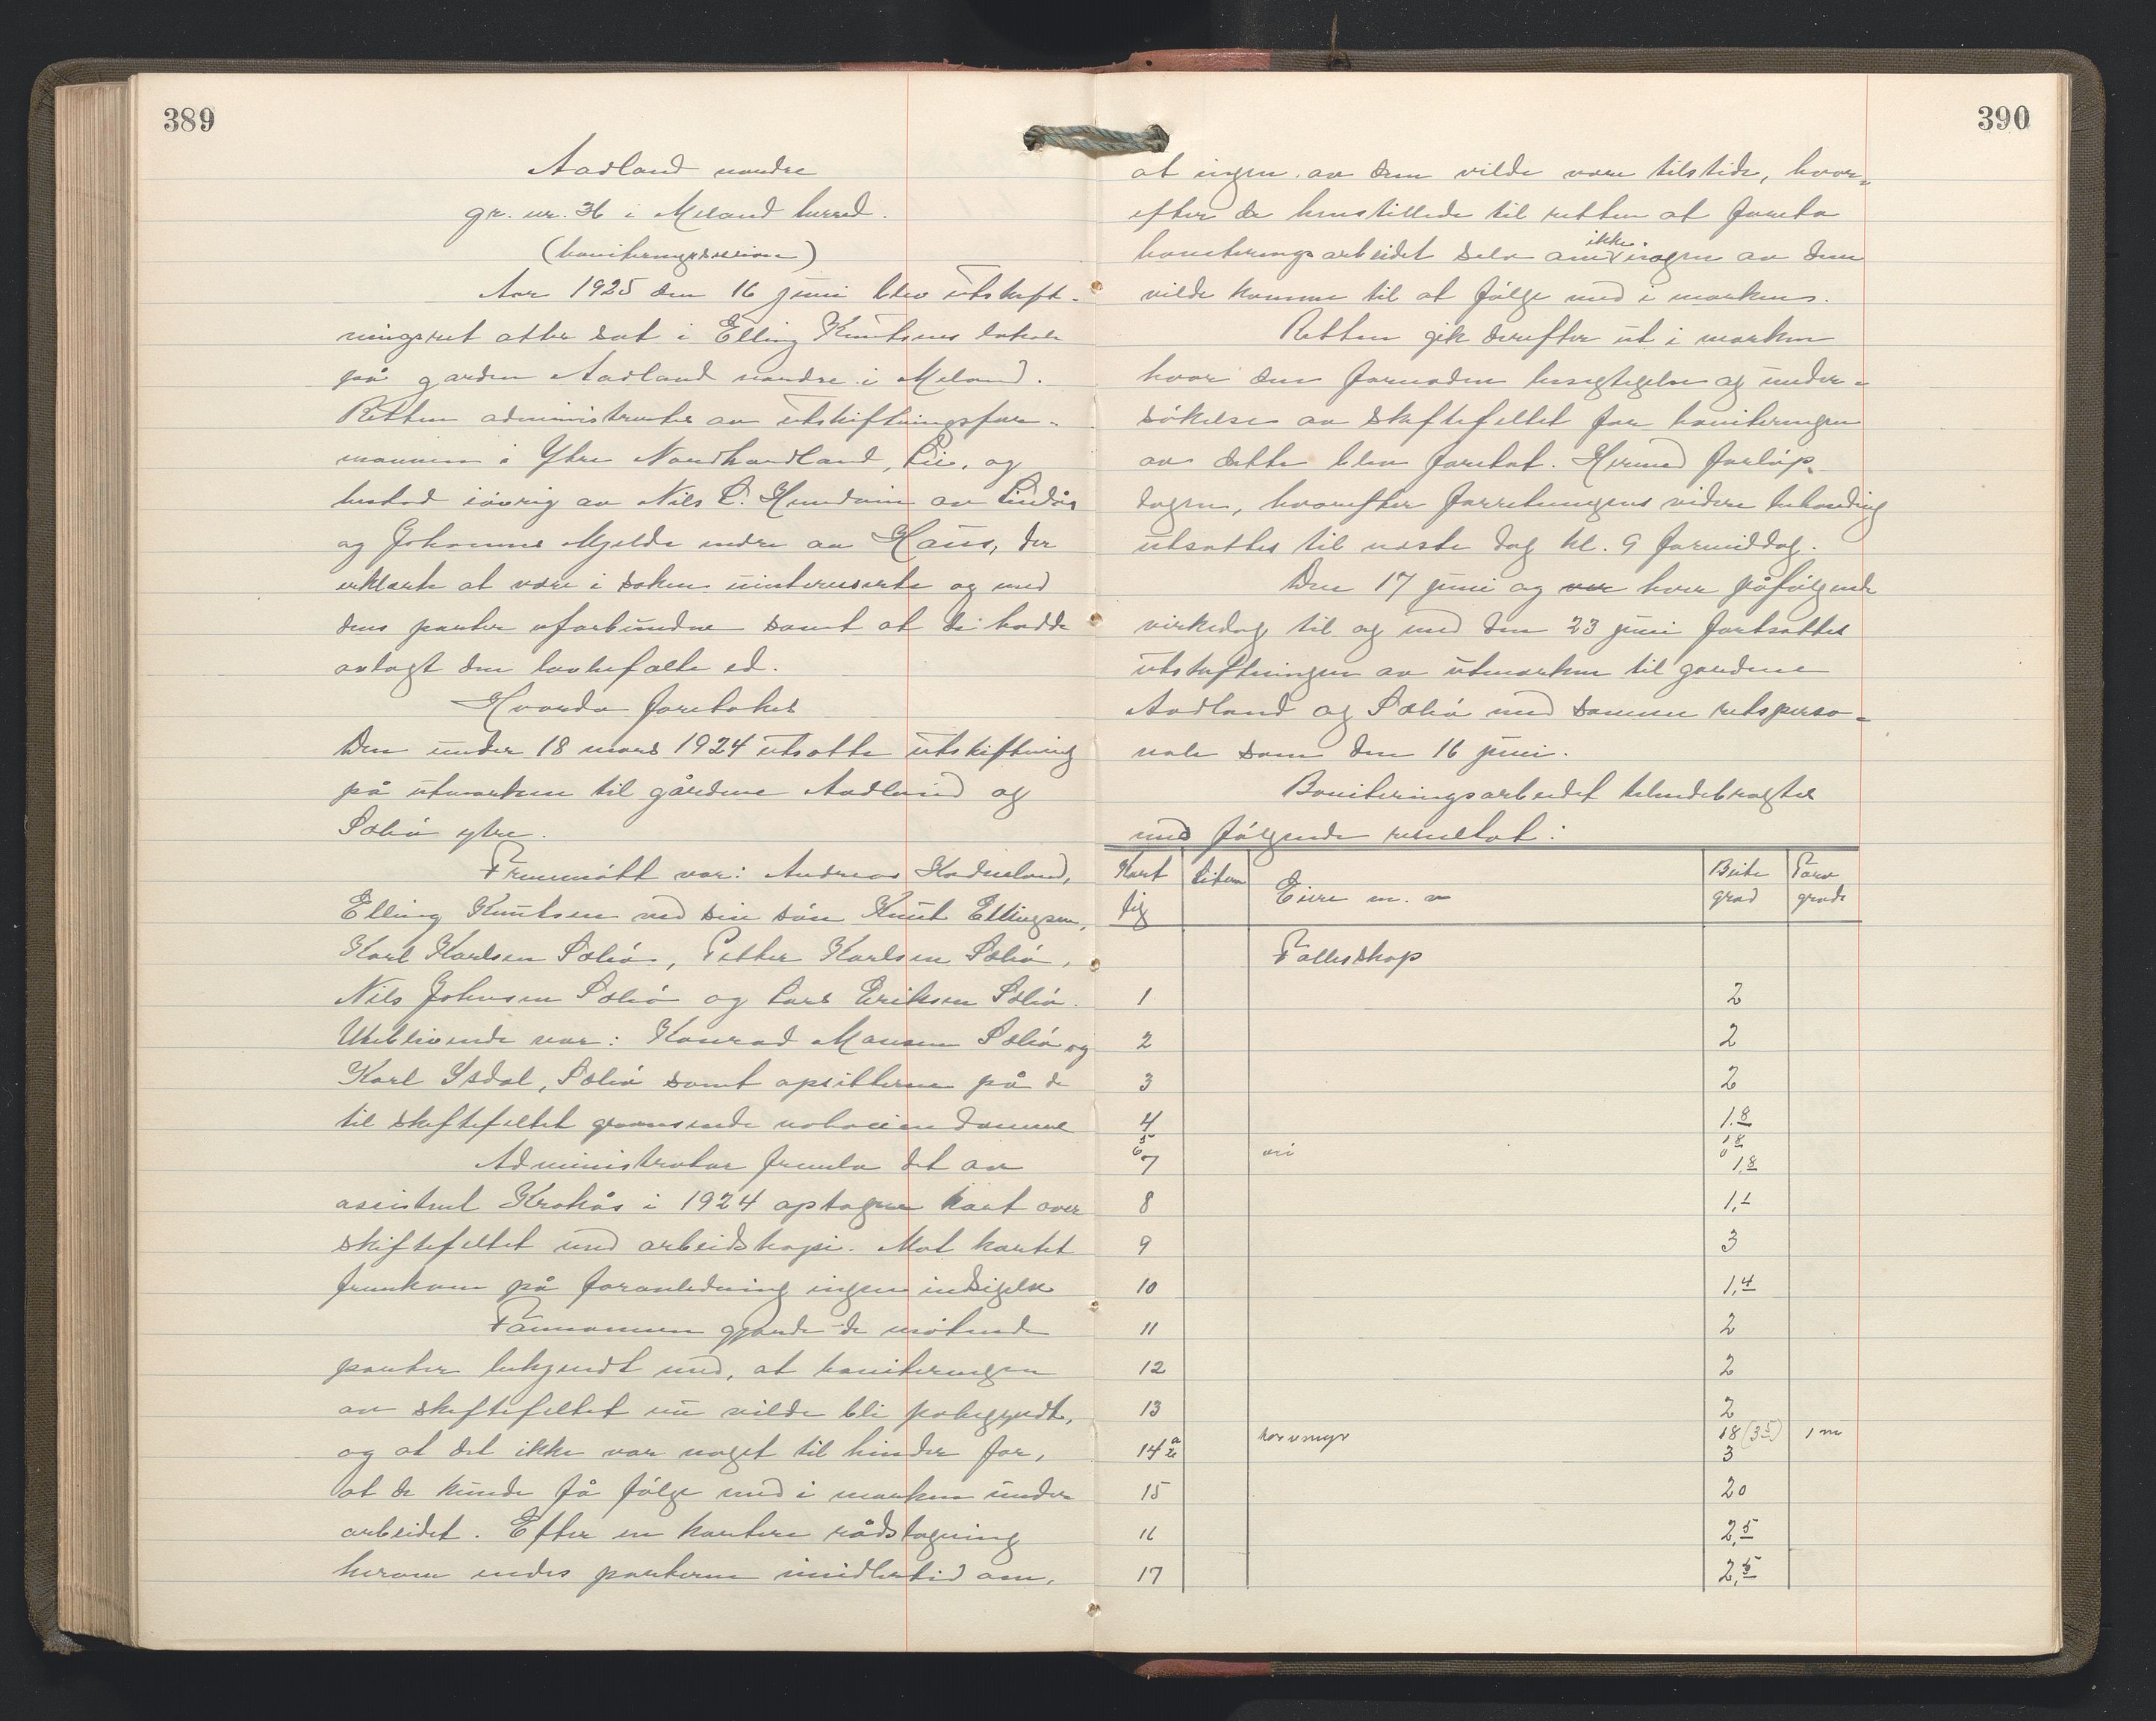 389
Aadland nordre
gr. nr. 36 i Meland herred.
(boniteringssession)
Aar 1925 den 16 juni blev utskift-
ningsret atter sat i Elling Knutsens lokale
på garden Aadland nordre i Meland.
Retten administrertes av utskiftningsfor-
mannen i Ytre Nordhordland, Lie, og
bestod iøvrig av Nils L. Hundvin av Lindås
og Johannes Mjelde indre av Haus, der
erklærte at være i saken uinteresserte og med
dens parter uforbundne samt at de hadde
avlagt den lovbefalte ed.
Hvorda foretokes
Den under 18 mars 1924 utsatte utskiftning
på utmarken til gårdene Aadland og
Sæbø ytre.
Fremmøtt var: Andreas Kadneland,
Elling Knutsen ved sin søn Knut Ellingsen,
Karl Karlsen Sæbø, Petter Karlsen Sæbø,
Nils Johnsen Sæbø og Lars Eriksen Sæbø.
Uteblivende var: Konrad Monsen Sæbø og
Karl Isdal, Sæbø samt opsitterne på de
til skiftefeltet grænsende naboeiendomme
Administrator fremla det av
assistent Krokås i 1924 optagne kart over
skiftefeltet med arbeidskopi. Mot kartet
fremkom på foranledning ingen indsigelse
Formannen gjorde de møtende
parter bekjendt med, at boniteringen
av skiftefeltet nu vilde bli påbegyndt,
og at det ikke var noget til hinder for,
at de kunde få følge med i marken under
arbeidet. Efter en kortere rådslagning
herom endes parterne imidlertid om,
390
at ingen av dem vilde være tilstede, hvor-
efter de henstillede til retten at foreta
boniteringsarbeidet selv om ikke nogen av dem
vilde komme til at følge med i marken.
Retten gik derefter ut i marken
hvor den fornødne besigtigelse og under-
søkelse av skiftefeltet for boniteringen
av dette blev foretat. Hermed forløp
dagen, hvorefter forretningens videre behandling
utsattes til næste dag kl. 9 formiddag.
Den 17 juni og hver påfølgende
virkedag til og med den 23 juni fortsattes
utskiftningen av utmarken til gardene
Aadland og Sæbø med samme retsperso-
nale som den 16 juni.
Boniteringsarbeidet tilendebragtes
med følgende resultat:
Kart fig Litra Eiere m. v Beite grad Torv grade
Fællesskap
1 2
2 2
3 2
4 1.8
5 1.8
6
7 1,8
8 1,1
9 3
10 1,4
11 2
12 2
13 2
14 a torvmyr 18 (3 5) 1 m
b 3
15 20
16 2,5
17 2,5